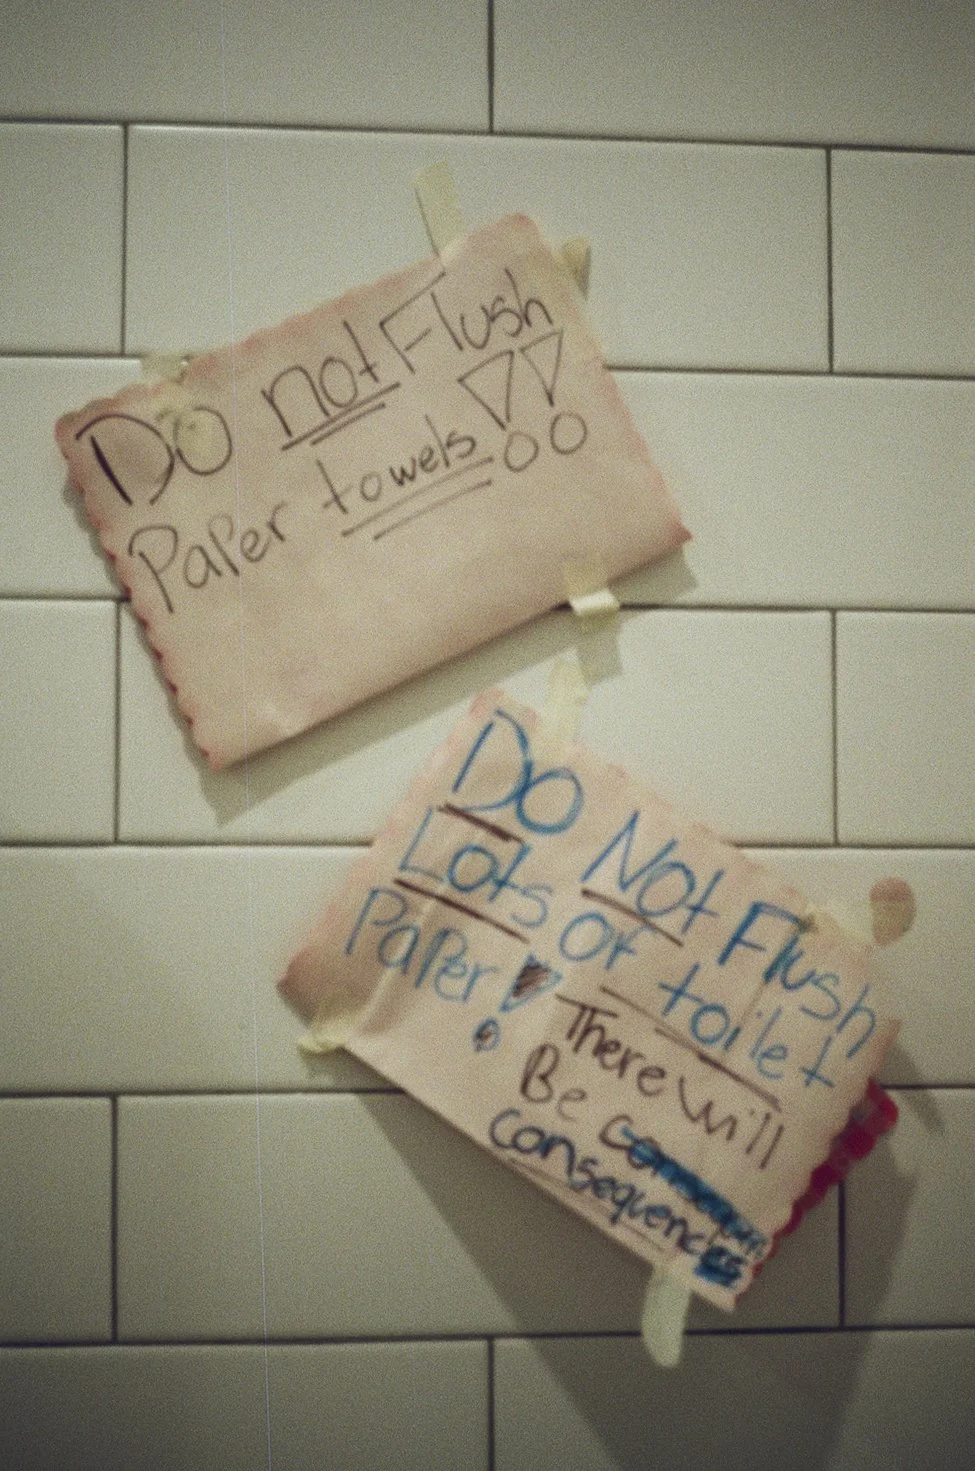 Do not Flush
Paper towels!!
Do Not Flush
Lots of toilet
Paper!
There will
Be consequen
consequences